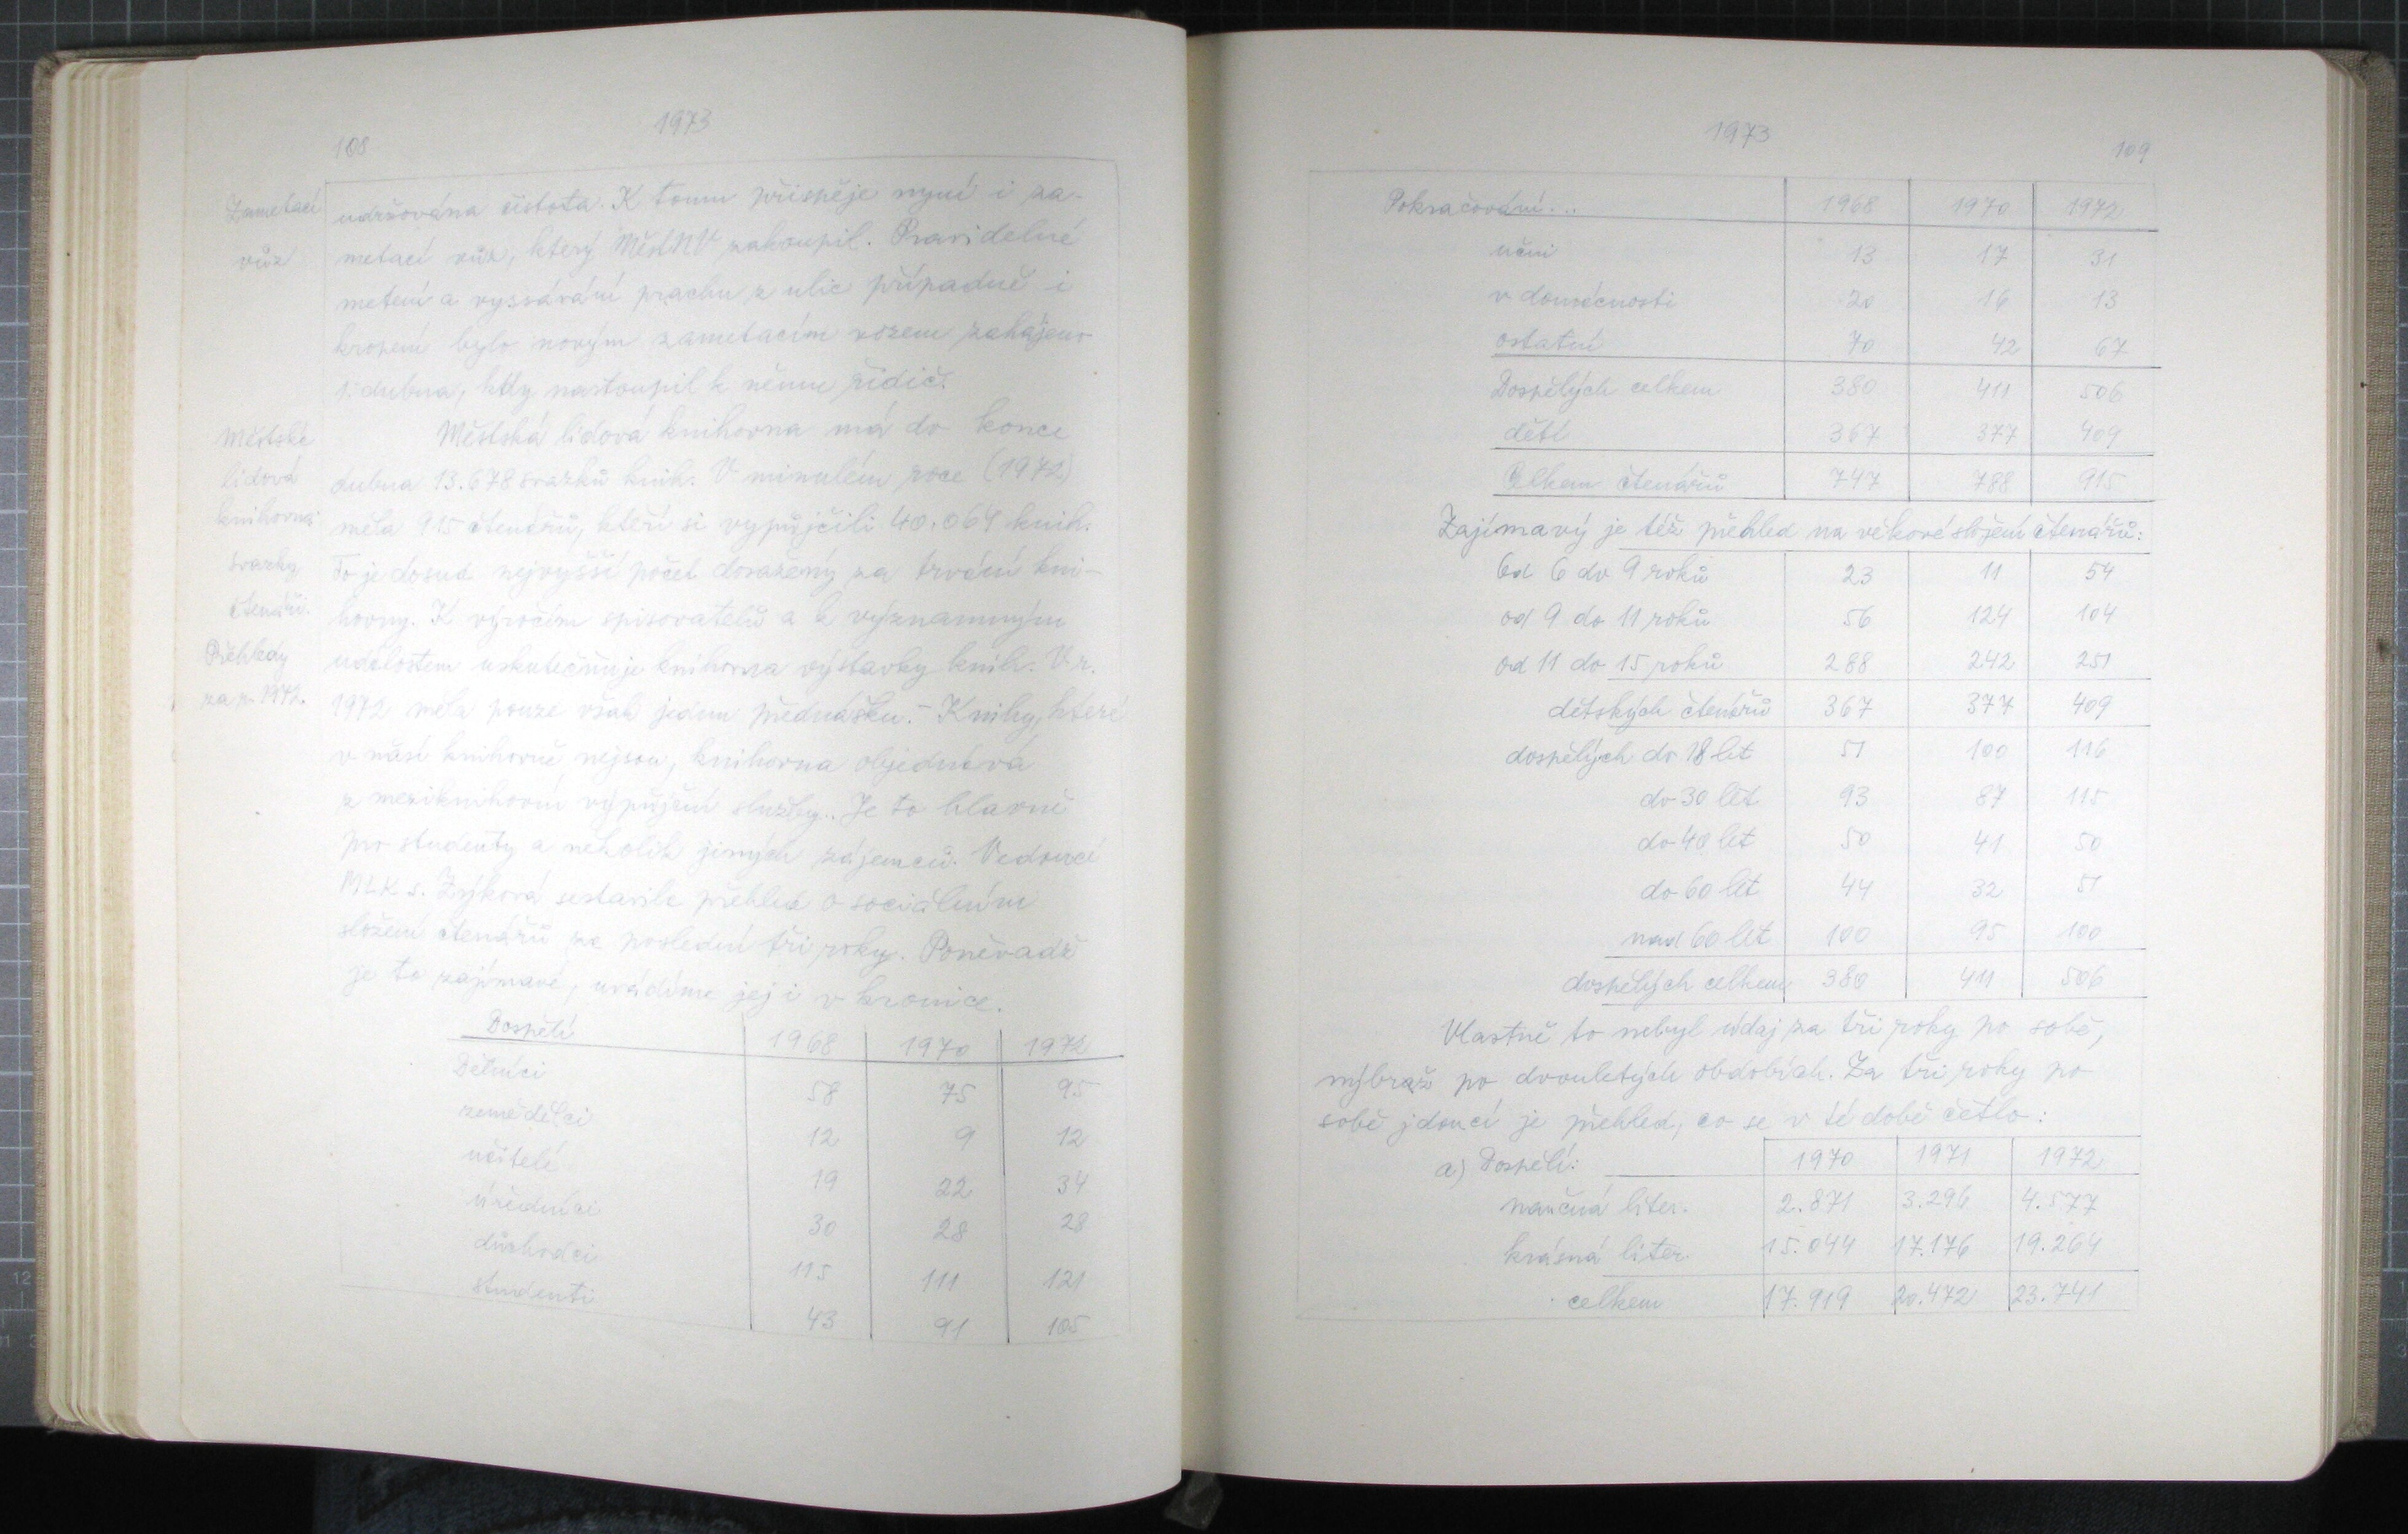 1973
108
Zametací
vůz
udržována čistota. K tomu přispěje nyní i za-
metací vůz, který MěstNV zakoupil. Pravidelné
metení a vyssávání prachu z ulic případně i
kropení bylo novým zametacím vozem zahájeno
1. dubna, kdy nastoupil k němu řidič.
Městská
lidová
knihovna:
svazky
čtenáři.
Přehledy
za r. 1972.
Městská lidová knihovna má do konce
dubna 13.678 svazků knih. V minulém roce (1972)
měla 915 čtenářů, kteří si vypůjčili 40.064 knih.
To je dosud nejvyšší počet dosažený za trvání kni-
hovny. K výročím spisovatelů a k významným
událostem uskutečňuje knihovna výstavky knih. V r.
1972 měla pouze však jednu přednášku. - Knihy, které
v naší knihovně nejsou, knihovna objednává
z meziknihovní výpůjční služby. Je to hlavně
pro studenty a několik jiných zájemců. Vedoucí
MLK s. Zýková sestavila přehled o sociálním
složení čtenářů za poslední tři roky. Poněvadž
je to zajímavé, uvádíme jej i v kronice.
Dospělí 1968 1970 1972
Dělníci 58 75 95
zemědělci 12 9 12
učitelé 19 22 34
úředníci 30 28 28
důchodci 115 111 121
studenti 43 91 105
1973
109
Pokračování... 1968 1970 1972
učni 13 17 31
v domácnosti 20 16 13
ostatní 70 42 67
Dospělých celkem 380 411 506
dětí 367 377 409
Celkem čtenářů 747 788 915
Zajímavý je též přehled na věkové složení čtenářů:
Od 6 do 9 roků 23 11 54
od 9 do 11 roků 56 124 104
od 11 do 15 roků 288 242 251
dětských čtenářů 367 377 409
dospělých do 18 let 51 100 116
do 30 let 93 87 115
do 40 let 50 41 50
do 60 let 44 32 51
nad 60 let 100 95 100
dospělých celkem 380 411 506
Vlastně to nebyl údaj za tři roky po sobě,
nýbraž po dvouletých obdobích. Za tři roky po
sobě jdoucí je přehled, co se v té době četlo:
a) Dospělí: 1970 1971 1972
naučná liter. 2.871 3.296 4.577
krásná liter. 15.044 17.176 19.264
celkem 17.919 20.472 23.741